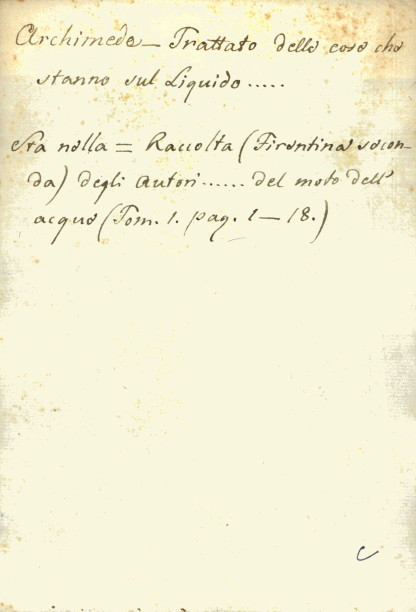 Archimede — Trattato delle cose che
stanno sul Liquido.....
Sta nella = Raccolta (Firentina secon-
da) degli Autori...... del moto dell'
acque (Tom. 1. pag. 1 — 18.)
C